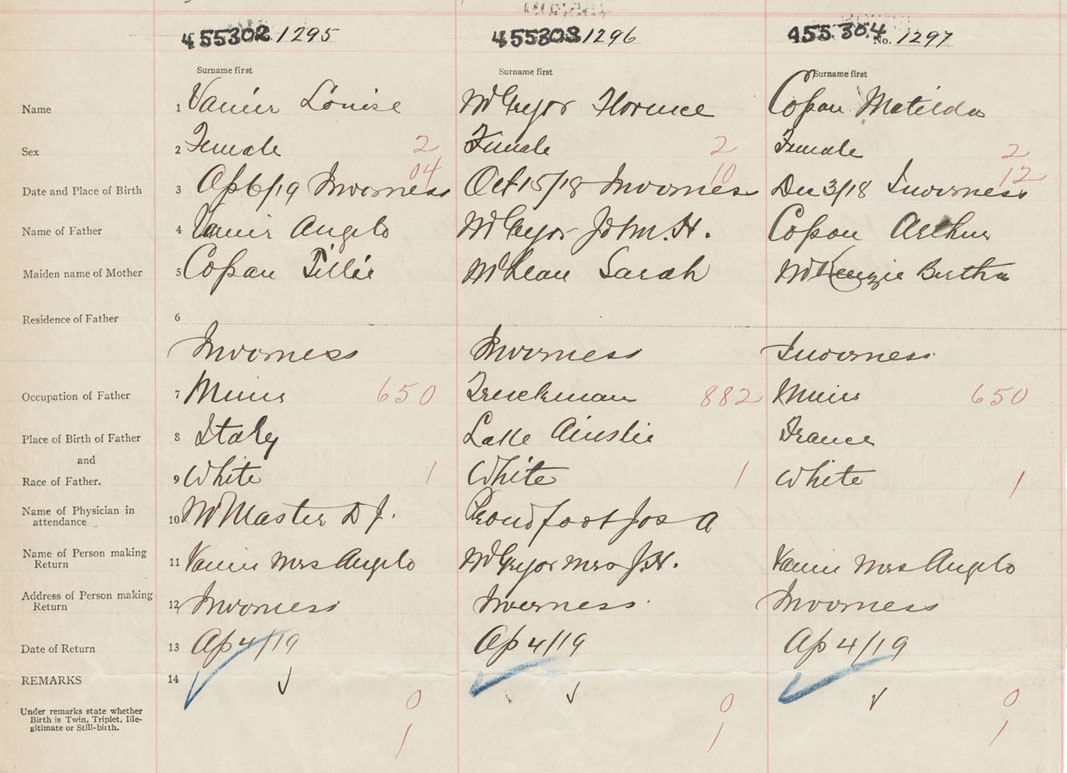 455302 1295 455303 1296 455304 No. 1297
Surname first Surname first Surname first
Name 1 Vanier Louise McGregor Florence Copan Matilda
Sex 2 Female 2 Female 2 Female 2
04 10 12
Date and Place of Birth 3 Ap 6/19 Inverness Oct 15/18 Inverness Dec 3/18 Inverness
Name of Father 4 Vanier Angelo McGregor John. H. Copan Arthur
Maiden name of Mother 5 Copan Tillie McLean Sarah McKenzie Bertha
Residence of Father 6
Inverness Inverness Inverness
Occupation of Father 7 Miner 650 Truckman 882 Miner 650
Place of Birth of Father 8 Italy Lake Ainslie France
and
Race of Father. 9 White 1 White 1 White 1
Name of Physician in
attendance 10 McMaster D J. Proudfoot Jos A
Name of Person making
Return 11 Vanier Mrs Angelo McGregor Mrs J.H. Vanier Mrs Angelo
Address of Person making
Return 12 Inverness Inverness Inverness
Date of Return 13 Ap 4/19 Ap 4/19 Ap 4/19
REMARKS 14
0 0 0
Under remarks state whether
Birth is Twin, Triplet, Ille-
gitimate or Still-birth.
1 1 1